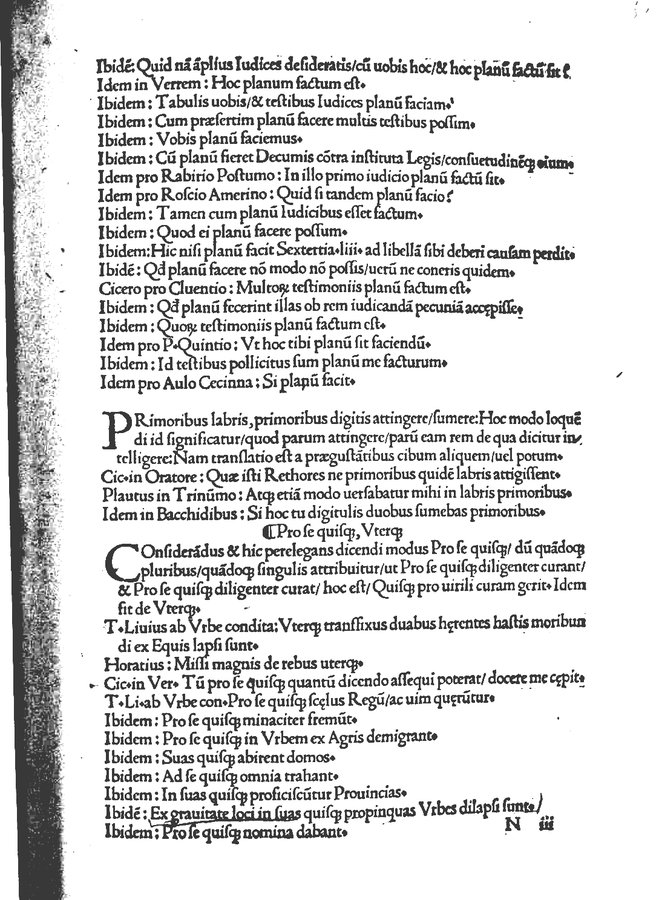 Ibidē: Quid nā āplius Iudices desideratis/cū uobis hoc/& hoc planū factū sit ?
Idem in Verrem : Hoc planum factum est.
Ibidem : Tabulis uobis/& testibus Iudices planū faciam.
Ibidem : Cum præsertim planū facere multis testibus possim.
Ibidem : Vobis planū faciemus.
Ibidem : Cū planū fieret Decumis cōtra instituta Legis/consuetudinēꝙ oium.
Idem pro Rabirio Postumo : In illo primo iudicio planū factū sit.
Idem pro Roscio Amerino : Quid si tandem planū facio?
Ibidem : Tamen cum planū Iudicibus esset factum.
Ibidem : Quod ei planū facere possum.
Ibidem:Hic nisi planū facit Sextertia.liii. ad libellā sibi deberi causam perdit.
Ibidē : Qđ planū facere nō modo nō possis/uerū ne coneris quidem.
Cicero pro Cluentio : Multoꝝ testimoniis planū factum est.
Ibidem : Qđ planū fecerint illas ob rem iudicandā pecuniā accępisse.
Ibidem : Quoꝝ testimoniis planū factum est.
Idem pro P.Quintio : Vt hoc tibi planū sit faciendū.
Ibidem : Id testibus pollicitus sum planū me facturum.
Idem pro Aulo Cecinna : Si planū facit.
PRimoribus labris,primoribus digitis attingere/sumere:Hoc modo loquē
di id significatur/quod parum attingere/parū eam rem de qua dicitur in/
telligere:Nam translatio est a prægustātibus cibum aliquem/uel potum.
Cic.in Oratore : Quæ isti Rethores ne primoribus quidē labris attigissent.
Plautus in Trinūmo : Atꝙ etiā modo uersabatur mihi in labris primoribus.
Idem in Bacchidibus : Si hoc tu digitulis duobus sumebas primoribus.
¶Pro se quisꝙ, Vterꝙ
COnsiderādus & hic perelegans dicendi modus Pro se quisꝙ/ dū quādoꝙ
pluribus/quādoꝙ singulis attribuitur/ut Pro se quisꝙ diligenter curant/
& Pro se quisꝙ diligenter curat/ hoc est/ Quisꝙ pro uirili curam gerit. Idem
fit de Vterꝙ.
T.Liuius ab Vrbe condita: Vterꝙ transfixus duabus hęrentes hastis moribun
di ex Equis lapsi sunt.
Horatius : Missi magnis de rebus uterꝙ.
Cic.in Ver. Tū pro se quisꝙ quantū dicendo assequi poterat/ docere me cępit.
T.Li.ab Vrbe con.Pro se quisꝙ scęlus Regū/ac uim quęrūtur.
Ibidem : Pro se quisꝙ minaciter fremūt.
Ibidem : Pro se quisꝙ in Vrbem ex Agris demigrant.
Ibidem : Suas quisꝙ abirent domos.
Ibidem : Ad se quisꝙ omnia trahant.
Ibidem : In suas quisꝙ proficiscūtur Prouincias.
Ibidē : Ex grauitate loci in suas quisꝙ propinquas Vrbes dilapsi sunt.
Ibidem : Pro se quisꝙ nomina dabant.
N iii